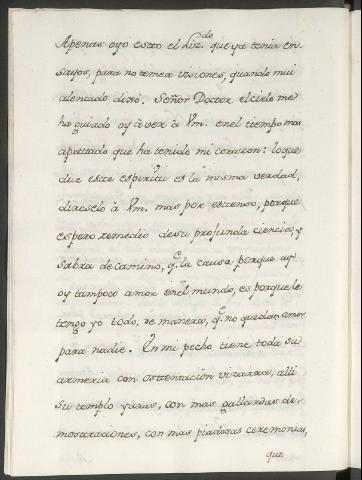 Apenas oyó esto el Liz.do que ya tenia en-
sayos, para no temer visiones, quando mui
alentado dixó. Señor Doctor, el cielo me
ha guiado oy à ver à Vm. en el tiempo mas
apretado que ha tenido mi corazon: lo que
dice este espiritu es la misma verdad,
direselo à Vm. mas por estenso, porque
espero remedio de su profunda ciencia, y
sabra de camino, q.e la causa porque ay
oy tampoco amor en el mundo, es porque le
tengo yo todo, de manera, q.e no queda amor
para nadie. En mi pecho tiene toda su
armeria con ostentación vizarra, alli
su templo y aras, con mas gallardas de-
mostraciones, con mas piadosas ceremonias,
que